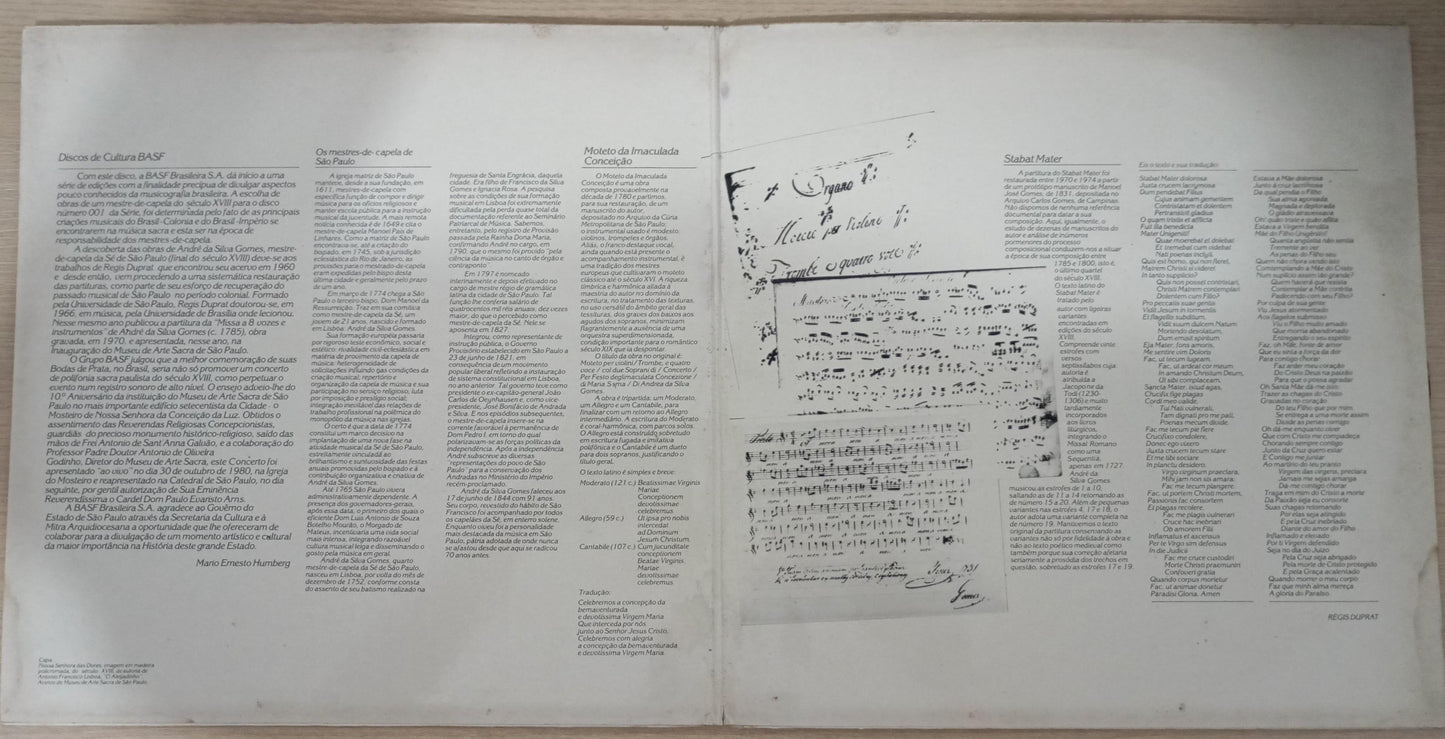 Discos de Cultura BASF
Com este disco, a BASF Brasileira S.A. dá início a uma
série de edições com a finalidade precípua de divulgar aspectos
pouco conhecidos da musicografia brasileira. A escolha de
obras de um mestre-de-capela do século XVIII para o disco
número 001 da Série, foi determinada pelo fato de as principais
criações musicais do Brasil - Colonia e do Brasil -Império se
encontrarem na música sacra e esta ser na época de
responsabilidade dos mestres-de-capela.
A descoberta das obras de André da Silva Gomes, mestre-
de-capela da Sé de São Paulo (final do século XVIII) deve-se aos
trabalhos de Régis Duprat que encontrou seu acervo em 1960
e desde então, vem procedendo a uma sistemática restauração
das partituras, como parte de seu esforço de recuperação do
passado musical de São Paulo no período colonial. Formado
pela Universidade de São Paulo, Régis Duprat doutorou-se, em
1966, em música, pela Universidade de Brasília onde lecionou.
Nesse mesmo ano publicou a partitura da "Missa a 8 vozes e
instrumentos" de André da Silva Gomes (c. 1785), obra
gravada, em 1970, e apresentada, nesse ano, na
Inauguração do Museu de Arte Sacra de São Paulo.
O Grupo BASF julgou que a melhor comemoração de suas
Bodas de Prata, no Brasil, seria não só promover um concerto
de polifonia sacra paulista do século XVIII, como perpetuar o
evento num registro sonoro de alto nível. O ensejo adveio-lhe do
10º Aniversário da instituição do Museu de Arte Sacra de São
Paulo no mais importante edifício setecentista da Cidade - o
Mosteiro de Nossa Senhora da Conceição da Luz. Obtidos o
assentimento das Reverendas Religiosas Concepcionistas,
guardiãs do precioso monumento histórico-religioso, saído das
mãos de Frei Antonio de Sant'Anna Galvão, e a colaboração do
Professor Padre Doutor Antonio de Oliveira
Godinho, Diretor do Museu de Arte Sacra, este Concerto foi
apresentado "ao vivo" no dia 30 de outubro de 1980, na Igreja
do Mosteiro e reapresentado na Catedral de São Paulo, no dia
seguinte, por gentil autorização de Sua Eminência
Reverendíssima o Cardeal Dom Paulo Evaristo Arns.
A BASF Brasileira S.A. agradece ao Govêrno do
Estado de São Paulo através da Secretaria da Cultura e à
Mitra Arquidiocesana a oportunidade que lhe ofereceram de
colaborar para a divulgação de um momento artístico e cultural
da maior importância na História deste grande Estado.
Mario Ernesto Humberg
Capa
Nossa Senhora das Dores, imagem em madeira
policromada, do século XVIII, de autoria de
Antonio Francisco Lisboa, "O Aleijadinho".
Acervo do Museu de Arte Sacra de São Paulo.
Os mestres-de- capela de
São Paulo
A igreja matriz de São Paulo
manteve, desde a sua fundação, em
1611, mestres-de-capela com
específica função de compor e dirigir
música para os ofícios religiosos e
manter escola pública para a instrução
musical da juventude. A mais remota
notícia conhecida é de 1649 e cita o
mestre-de-capela Manoel Pais de
Linhares. Como a matriz de São Paulo
encontrava-se, até a criação do
bispado, em 1745, sob a jurisdição
eclesiástica do Rio de Janeiro, as
provisões para o mestrado-de-capela
eram expedidas pelo bispo desta
última cidade e geralmente pelo prazo
de um ano.
Em março de 1774 chega a São
Paulo o terceiro bispo, Dom Manoel da
Ressurreição. Traz, em sua comitiva
como mestre-de-capela da Sé, um
jovem de 21 anos, nascido e formado
em Lisboa: André da Silva Gomes.
Sua formação européia passaria
por rigoroso teste econômico, social e
estético: rivalidade civil-eclesiástica em
matéria de provimento da capela de
música; heterogeneidade das
solicitações influindo nas condições da
criação musical, repertório e
organização da capela de música e sua
participação no serviço religioso; luta
por imposição e prestígio social;
integração inevitável das relações de
trabalho profissional na polêmica do
monopólio da música nas igrejas.
O certo é que a data de 1774
constitui um marco decisivo na
implantação de uma nova fase na
atividade musical da Sé de São Paulo,
estreitamente vinculada ao
brilhantismo e suntuosidade das festas
anuais promovidas pelo bispado e à
contribuição organizativa e criativa de
André da Silva Gomes.
Até 1765 São Paulo vivera
administrativamente dependente. A
presença dos governadores-gerais,
após essa data, o primeiro dos quais o
eficiente Dom Luis Antonio de Souza
Botelho Mourão, o Morgado de
Mateus, incentivaria uma vida social
mais interna, integrando razoável
cultura musical leiga e disseminando o
gosto pela música em geral.
André da Silva Gomes, quarto
mestre-de-capela da Sé de São Paulo,
nasceu em Lisboa, por volta do mês de
dezembro de 1752, conforme consta
do assento de seu batismo realizado na
freguesia de Santa Engrácia, daquela
cidade. Era filho de Francisco da Silva
Gomes e Ignacia Rosa. A pesquisa
sobre as condições de sua formação
musical em Lisboa foi extremamente
dificultada pela perda quase total da
documentação referente ao Seminário
Patriarcal de Música. Sabemos,
entretanto, pelo registro de Provisão
passada pela Rainha Dona Maria,
confirmando André no cargo, em
1790, que o mesmo foi provido "pela
ciência da música no canto de órgão e
contraponto".
Em 1797 é nomeado
interinamente e depois efetivado no
cargo de mestre régio de gramática
latina da cidade de São Paulo. Tal
função lhe conferia salário de
quatrocentos mil réis anuais, dez vezes
maior, do que o percebido como
mestre-de-capela da Sé. Nele se
aposenta em 1827.
Integrou, como representante de
instrução pública, o Governo
Provisório estabelecido em São Paulo a
23 de junho de 1821, em
consequência de um movimento
popular liberal refletindo a instauração
de sistema constitucional em Lisboa,
no ano anterior. Tal governo teve como
presidente o ex-capitão-general João
Carlos de Oeynhausen e, como vice-
presidente, José Bonifácio de Andrada
e Silva. E nos episódios subsequentes,
o mestre-de-capela insere-se na
corrente favorável à permanência de
Dom Pedro I, em torno do qual
polarizavam-se as forças políticas da
independência. Após a independência
André subscreve as diversas
"representações do povo de São
Paulo" para a conservação dos
Andradas no Ministério do Império
recém-proclamado.
André da Silva Gomes faleceu aos
17 de junho de 1844 com 91 anos.
Seu corpo, revestido do hábito de São
Francisco foi acompanhado por todos
os capelães da Sé, em enterro solene.
Enquanto viveu foi a personalidade
mais destacada da música em São
Paulo, pátria adotada de onde nunca
se afastou desde que aqui se radicou
70 anos antes.
Moteto da Imaculada
Conceição
O Moteto da Imaculada
Conceição é uma obra
composta provavelmente na
década de 1780 e partimos,
para sua restauração, de um
manuscrito do autor,
depositado no Arquivo da Cúria
Metropolitana de São Paulo;
o instrumental usado é modesto:
violinos, trompetes e órgãos.
Aliás, o franco destaque vocal,
ainda quando está presente o
acompanhamento instrumental, é
uma tradição dos mestres
europeus que cultivaram o moteto
clássico até o século XVI. A riqueza,
tímbrica e harmônica aliada à
maestria do autor no domínio da
escritura, no tratamento das texturas,
no uso versátil do âmbito geral das
tessituras, dos graves dos baixos aos
agudos dos sopranos, minimizam
flagrantemente a ausência de uma
orquestra superdimensionada,
condição importante para o romântico
século XIX que ia despontar.
O título da obra no original é:
Moteto per violini/ Trombe, e quatro
voce / col due Soprani di / Concerto /
Per Festo deglimmaculata Concezione /
di Maria S.sma / Di Andrea da Silva
Gomes.
A obra é tripartida: um Moderato,
um Allegro e um Cantabile, para
finalizar com um retorno ao Allegro
intermediário. A escritura do Moderato
é coral-harmônica, com parcos solos.
O Allegro está construído sobretudo
em escritura fugada e imitativa
polifônica e o Cantabile é um dueto
para dois sopranos, justificando o
título geral.
O texto latino é simples e breve:
Moderato (121 c.) Beatissimae Virginis
Mariae
Conceptionem
devotissimae
celebremus
Allegro (59 c.) Ut ipsa pro nobis
intercedat
ad Dominum
Jesum Christum.
Cantabile (107 c.) Cum jucunditate
conceptionem
Beatae Virginis
Mariae
devotissimae
celebremus.
Tradução:
Celebremos a concepção da
bemaventurada
e devotíssima Virgem Maria
Que interceda por nós
junto ao Senhor Jesus Cristo.
Celebremos com alegria
a concepção da bemaventurada
e devotíssima Virgem Maria.
Organo
Violini
Trombe e quatro voce
Gomes
Stabat Mater
A partitura do Stabat Mater foi
restaurada entre 1970 e 1974 a partir
de um protótipo manuscrito de Manoel
José Gomes, de 1831, depositado no
Arquivo Carlos Gomes, de Campinas.
Não dispomos de nenhuma referência
documental para datar a sua
composição. Aqui, igualmente, o
estudo de dezenas de manuscritos do
autor e análise de inúmeros
pormenores do processo
composicional conduzem-nos a situar
a época de sua composição entre
1785 e 1800, isto é,
o último quartel
do século XVIII.
O texto latino do
Stabat Mater é
tratado pelo
autor com ligeiras
variantes
encontradas em
edições do século
XVIII.
Compreende vinte
estrofes com
versos
septissílabos cuja
autoria é
atribuída a
Jacopone da
Todi (1230-
1306) e muito
tardiamente
incorporados
aos livros
litúrgicos,
integrando o
Missal Romano
como uma
Sequentia,
apenas em 1727.
André da
Silva Gomes
musicou as estrofes de 1 a 10,
saltando as de 11 a 14 retomando as
de número 15 a 20. Além de pequenas
variantes nas estrofes 4, 17 e 18, o
autor adota uma variante completa na
de número 19. Mantivemos o texto
original da partitura conservando as
variantes não só por fidelidade à obra e
não ao texto poético medieval como
também porque sua correção afetaria
seriamente a prosódia dos trechos em
questão, sobretudo as estrofes 17 e 19.
Eis o texto e sua tradução:
Stabat Mater dolorosa
Juxta crucem lacrymosa
Dum pendebat Filius
Cujus animam gementem
Contristatam et dolentem
Pertransivit gladius
O quam tristis et afflicta
Fuit illa benedicta
Mater Unigeniti!
Quae moerebat et dolebat
Et tremebat cum videbat
Nati poenas inclyti.
Quis est homo, qui non fleret,
Matrem Christi si videret
In tanto supplicio?
Quis non possel contristari,
Christi Matrem contemplari
Dolentem cum Filio?
Pro peccatis suae gentis
Vidit Jesum in tormentis
Et flagellis subditum,
Vidit suum dulcem Natum
Moriendo desolatum,
Dum emisit spiritum
Eja Mater, fons amoris,
Me sentire vim Doloris
Fac, ut tecum lugeam.
Fac, ut ardeat cor meum
In amando Christum Deum,
Ut sibi complaceam.
Sancta Mater, istud agas,
Crucifixi fige plagas
Cordi meo valide.
Tui Nati vulnerati,
Tam dignati pro me pati,
Poenas mecum divide.
Fac me tecum pie flere
Crucifixo condolere,
Donec ego vixero
Juxta crucem tecum stare
Et me tibi sociare
In planctu desidero.
Virgo virginum praeclara,
Mihi jam non sis amara:
Fac me tecum plangere.
Fac, ut portem Christi mortem,
Passionis fac consortem
Et plagas recolere.
Fac me plagis vulnerari
Cruce hac inebriari
Ob amorem Filii
Inflamatus et ascensus
Per te Virgo sim defensus
In die Judicii
Fac me cruce custodiri
Morte Christi praemuniri
Confoveri gratia
Quando corpus morietur
Fac, ut animae donetur
Paradisi Gloria. Amen
Estava a Mãe dolorosa
Junto à cruz lacrimosa
Da qual pendia o Filho
Sua alma agoniada
Magoada e deplorada
O gládio atravessava
Oh! quão triste e quão aflita
Estava a Virgem bendita
Mãe do Filho Unigênito!
Quanta angústia não sentia
Tremente ao ver
As penas do Filho seu
Quem não chora vendo isto
Contemplando a Mãe do Cristo
Num suplício assim tão grande?
Quem haverá que resista
Contemplar a Mãe contrita
Padecendo com seu Filho?
Por culpa de sua gente
Viu Jesus atormentado
Aos flagelos submisso
Viu o Filho muito amado
Que morria abandonado
Entregando o seu espírito
Faz, oh Mãe, fonte de amor
Que eu sinta a força da dor
Para contigo chorar
Faz arder meu coração
Do Cristo Deus na paixão
Para que o possa agradar
Oh Santa Mãe dá-me isto:
Trazer as chagas do Cristo
Gravadas no coração
Do teu Filho que por mim
Se entrega a uma morte assim
Divide as penas comigo
Oh dá-me enquanto viver
Que com Cristo me compadeça
Chorando sempre contigo
Junto da Cruz quero estar
E Contigo me juntar
Ao martírio do teu pranto
Virgem das virgens, preclara
Jamais me sejas amarga
Dá-me contigo chorar
Traga em mim do Cristo a morte
Da Paixão seja eu consorte
Suas chagas retomando
Por elas seja atingido
E pela Cruz inebriado
Diante do amor do Filho
Inflamado e elevado
Por ti Virgem defendido
Seja no dia do Juízo
Pela Cruz seja abrigado
Pela morte de Cristo protegido
E pela Graça acalentado
Quando morrer o meu corpo
Faz que minh'alma mereça
A gloria do Paraíso.
RÉGIS DUPRAT